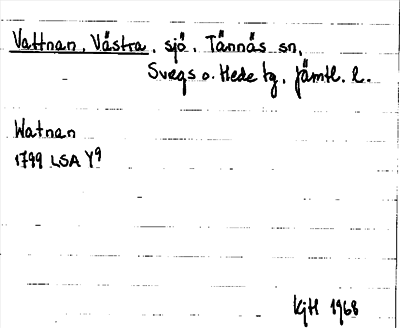 Vattnan, Västra, sjö, Tännäs sn,
Svegs o. Hede tg, Jämtl. l.
Watnan
1799 LSA Y9
KjH 1968